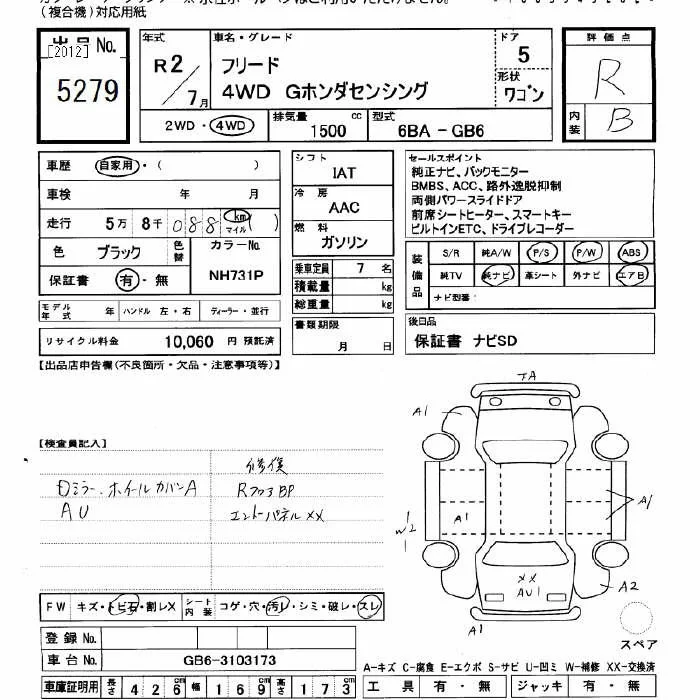 (複合機)対応用紙
出品 No.
[2012]
5279
年式
R2/7月
車名・グレード
フリード
4WD Gホンダセンシング
ドア
5
形状
ワゴン
評価点
R
内装
B
2WD・4WD
排気量
1500 cc
型式
6BA - GB6
車歴 自家用・( )
車検 年 月
走行 5万 8千 088 km マイル ( )
色 ブラック 色替 カラーNo. NH731P
保証書 有・無
モデル年式 年 ハンドル 左・右 ディーラー・並行
リサイクル料金 10,060 円 預託済
シフト IAT
冷房 AAC
燃料 ガソリン
乗車定員 7 名
積載量 kg
総重量 kg
書類期限 月 日
セールスポイント
純正ナビ、バックモニター
BMBS、ACC、路外逸脱抑制
両側パワースライドドア
前席シートヒーター、スマートキー
ビルトインETC、ドライブレコーダー
装備品
S/R 純A/W P/S P/W ABS
純TV 純ナビ 革シート 外ナビ エアB
ナビ型番:
後日品
保証書 ナビSD
【出品店申告欄(不良箇所・欠品・注意事項等)】
【検査員記入】
修復
ミラー、ホイールカバーA
RフロアBP
AU
エンドパネルXX
JA
A1
A1
A1
W2
XX
AU1
A2
A1
スペア
FW キズ・トビ石・割レX
シート内装 コゲ・穴・汚レ・シミ・破レ・スレ
登録 No.
車台 No. GB6-3103173
車庫証明用 長さ 426 cm 幅 169 cm 高さ 173 cm
A-キズ C-腐食 E-エクボ S-サビ U-凹ミ W-補修 XX-交換済
工具 有・無 ジャッキ 有・無